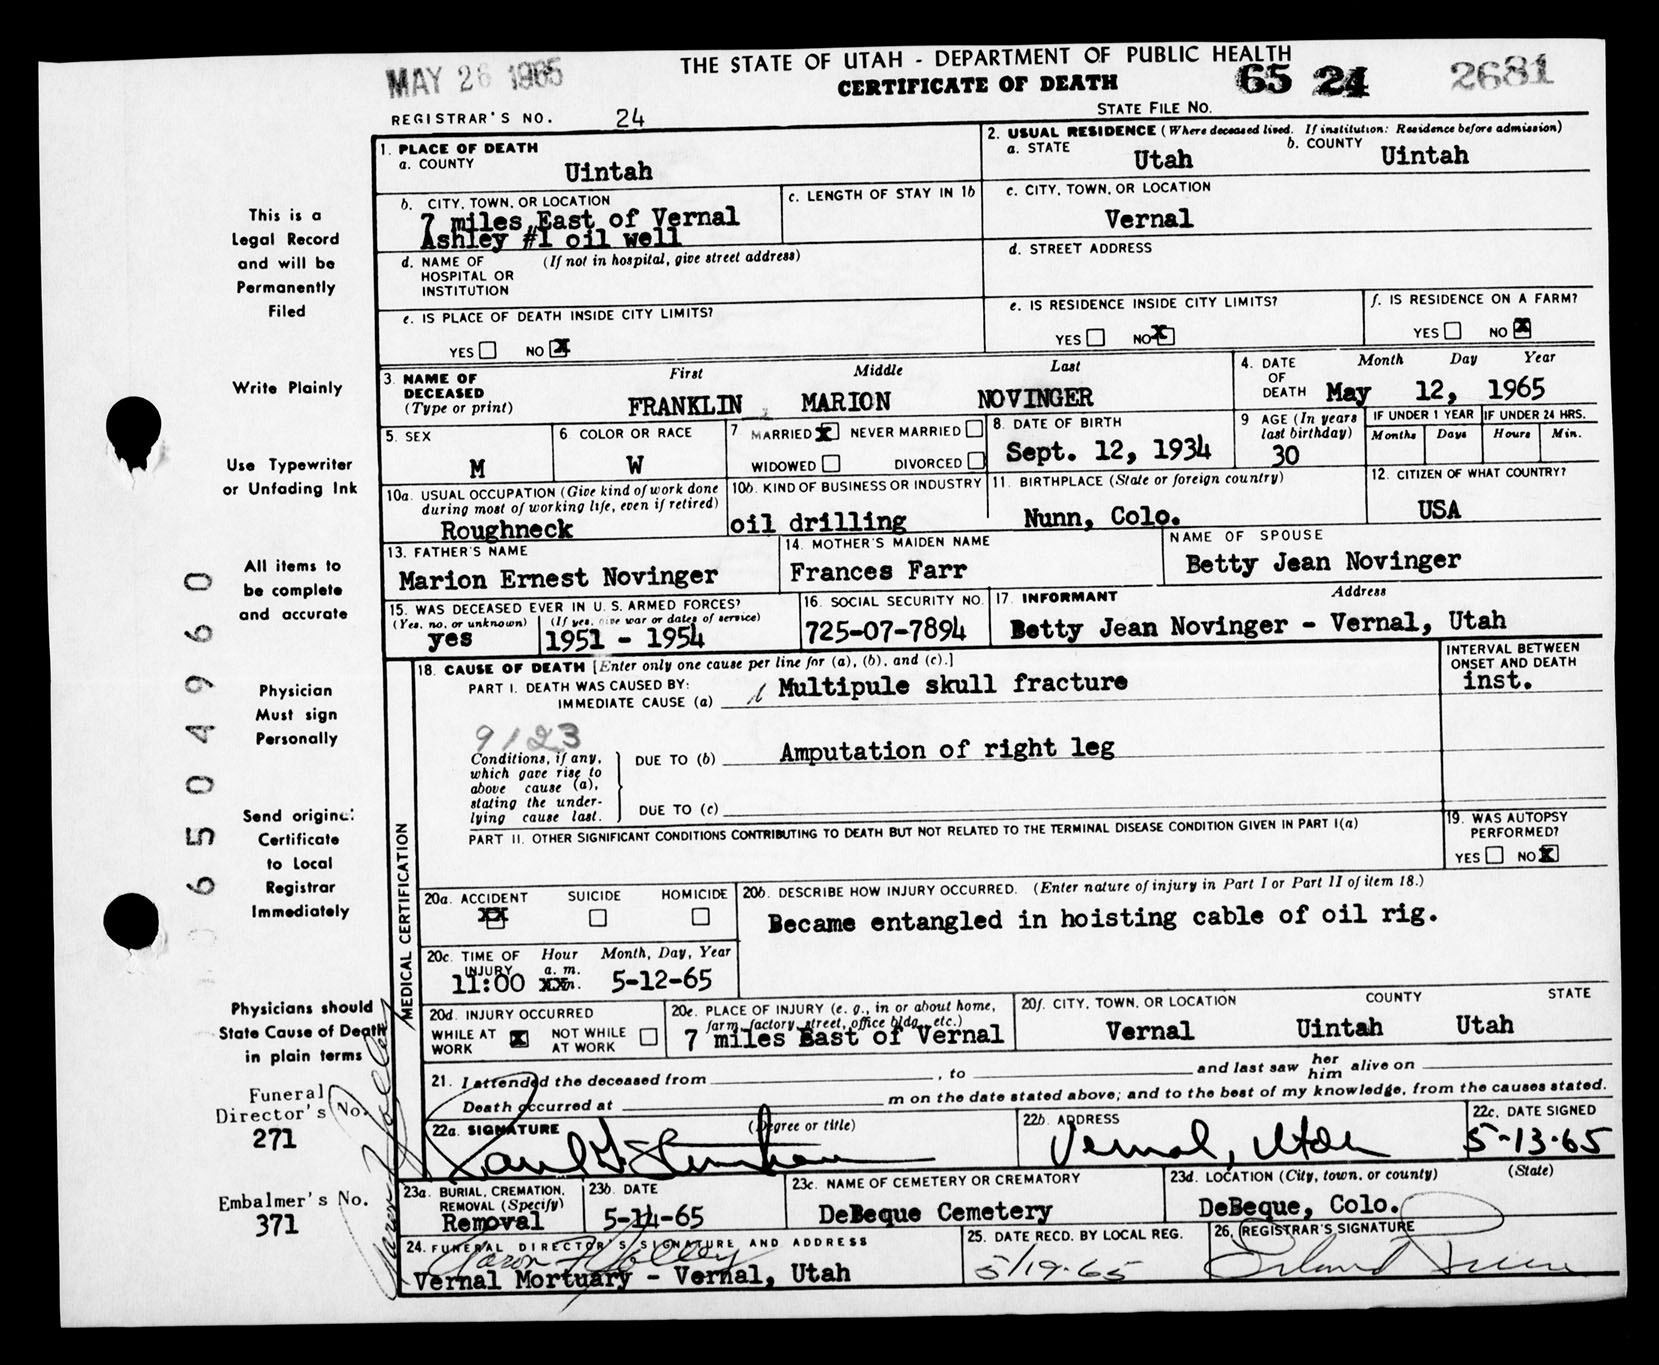 THE STATE OF UTAH - DEPARTMENT OF PUBLIC HEALTH
MAY 26 1965
CERTIFICATE OF DEATH
65 24 2681
STATE FILE NO.
REGISTRAR'S NO. 24
1. PLACE OF DEATH
a. COUNTY
Uintah
2. USUAL RESIDENCE (Where deceased lived. If institution: Residence before admission)
a. STATE Utah b. COUNTY Uintah
b. CITY, TOWN, OR LOCATION
7 miles East of Vernal
Ashley #1 oil well
c. LENGTH OF STAY IN 1b
c. CITY, TOWN, OR LOCATION
Vernal
d. NAME OF HOSPITAL OR INSTITUTION (If not in hospital, give street address)
d. STREET ADDRESS
e. IS PLACE OF DEATH INSIDE CITY LIMITS?
YES NO X
e. IS RESIDENCE INSIDE CITY LIMITS?
YES NO X
f. IS RESIDENCE ON A FARM?
YES NO X
3. NAME OF DECEASED (Type or print)
First Middle Last
FRANKLIN MARION NOVINGER
4. DATE OF DEATH
Month Day Year
May 12, 1965
5. SEX
M
6 COLOR OR RACE
W
7 MARRIED X NEVER MARRIED
WIDOWED DIVORCED
8. DATE OF BIRTH
Sept. 12, 1934
9 AGE (In years last birthday)
30
IF UNDER 1 YEAR
Months Days
IF UNDER 24 HRS.
Hours Min.
10a. USUAL OCCUPATION (Give kind of work done during most of working life, even if retired)
Roughneck
10b. KIND OF BUSINESS OR INDUSTRY
oil drilling
11. BIRTHPLACE (State or foreign country)
Nunn, Colo.
12. CITIZEN OF WHAT COUNTRY?
USA
13. FATHER'S NAME
Marion Ernest Novinger
14. MOTHER'S MAIDEN NAME
Frances Farr
NAME OF SPOUSE
Betty Jean Novinger
15. WAS DECEASED EVER IN U. S. ARMED FORCES?
(Yes, no, or unknown) (If yes, give war or dates of service)
yes 1951 - 1954
16. SOCIAL SECURITY NO.
725-07-7894
17. INFORMANT Address
Betty Jean Novinger - Vernal, Utah
MEDICAL CERTIFICATION
18. CAUSE OF DEATH [Enter only one cause per line for (a), (b), and (c).]
PART I. DEATH WAS CAUSED BY:
IMMEDIATE CAUSE (a) Multipule skull fracture
INTERVAL BETWEEN ONSET AND DEATH
inst.
9123
Conditions, if any, which gave rise to above cause (a), stating the underlying cause last.
DUE TO (b) Amputation of right leg
DUE TO (c)
PART II. OTHER SIGNIFICANT CONDITIONS CONTRIBUTING TO DEATH BUT NOT RELATED TO THE TERMINAL DISEASE CONDITION GIVEN IN PART I(a)
19. WAS AUTOPSY PERFORMED?
YES NO X
20a. ACCIDENT SUICIDE HOMICIDE
XX
20b. DESCRIBE HOW INJURY OCCURRED. (Enter nature of injury in Part I or Part II of item 18.)
Became entangled in hoisting cable of oil rig.
20c. TIME OF INJURY Hour Month, Day, Year
11:00 a. m. 5-12-65
20d. INJURY OCCURRED
WHILE AT WORK X NOT WHILE AT WORK
20e. PLACE OF INJURY (e. g., in or about home, farm, factory, street, office bldg., etc.)
7 miles East of Vernal
20f. CITY, TOWN, OR LOCATION COUNTY STATE
Vernal Uintah Utah
21. I attended the deceased from , to and last saw her him alive on
Death occurred at m on the date stated above; and to the best of my knowledge, from the causes stated.
22a. SIGNATURE (Degree or title)
22b. ADDRESS
Vernal, Utah
22c. DATE SIGNED
5-13-65
23a. BURIAL, CREMATION, REMOVAL (Specify)
Removal
23b. DATE
5-14-65
23c. NAME OF CEMETERY OR CREMATORY
DeBeque Cemetery
23d. LOCATION (City, town, or county) (State)
DeBeque, Colo.
24. FUNERAL DIRECTOR'S SIGNATURE AND ADDRESS
Vernal Mortuary - Vernal, Utah
25. DATE RECD. BY LOCAL REG.
5/19-65
26. REGISTRAR'S SIGNATURE
This is a
Legal Record
and will be
Permanently
Filed
Write Plainly
Use Typewriter
or Unfading Ink
All items to
be complete
and accurate
Physician
Must sign
Personally
Send original
Certificate
to Local
Registrar
Immediately
Physicians should
State Cause of Death
in plain terms
Funeral
Director's No.
271
Embalmer's No.
371
65049960